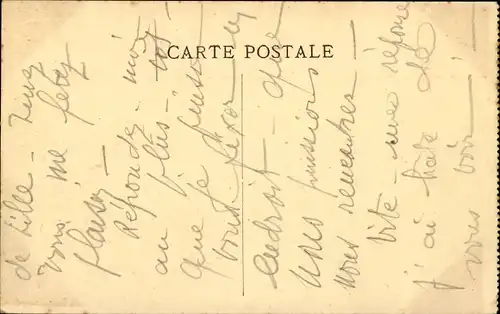 CARTE POSTALE
de Lille - Vous
vous me ferez
plaisir -
Réponds - moi
au plus - tot
que je puisse
vous fixer un
endroit - que
nous puissions
nous rencontrer -
vite - une réponse
J'ai hâte de
vous voir !